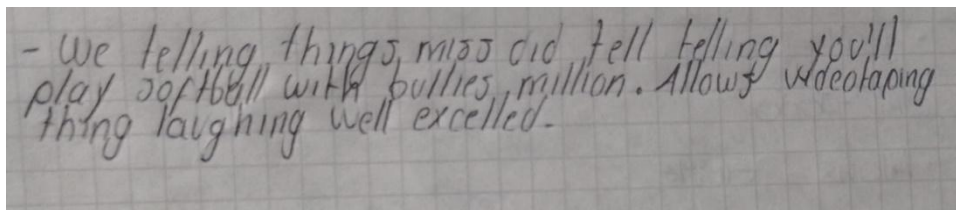 - We telling, things, miss did tell telling you'll
play softball with bullies, million. Allows videotaping
thing laughing well excelled.